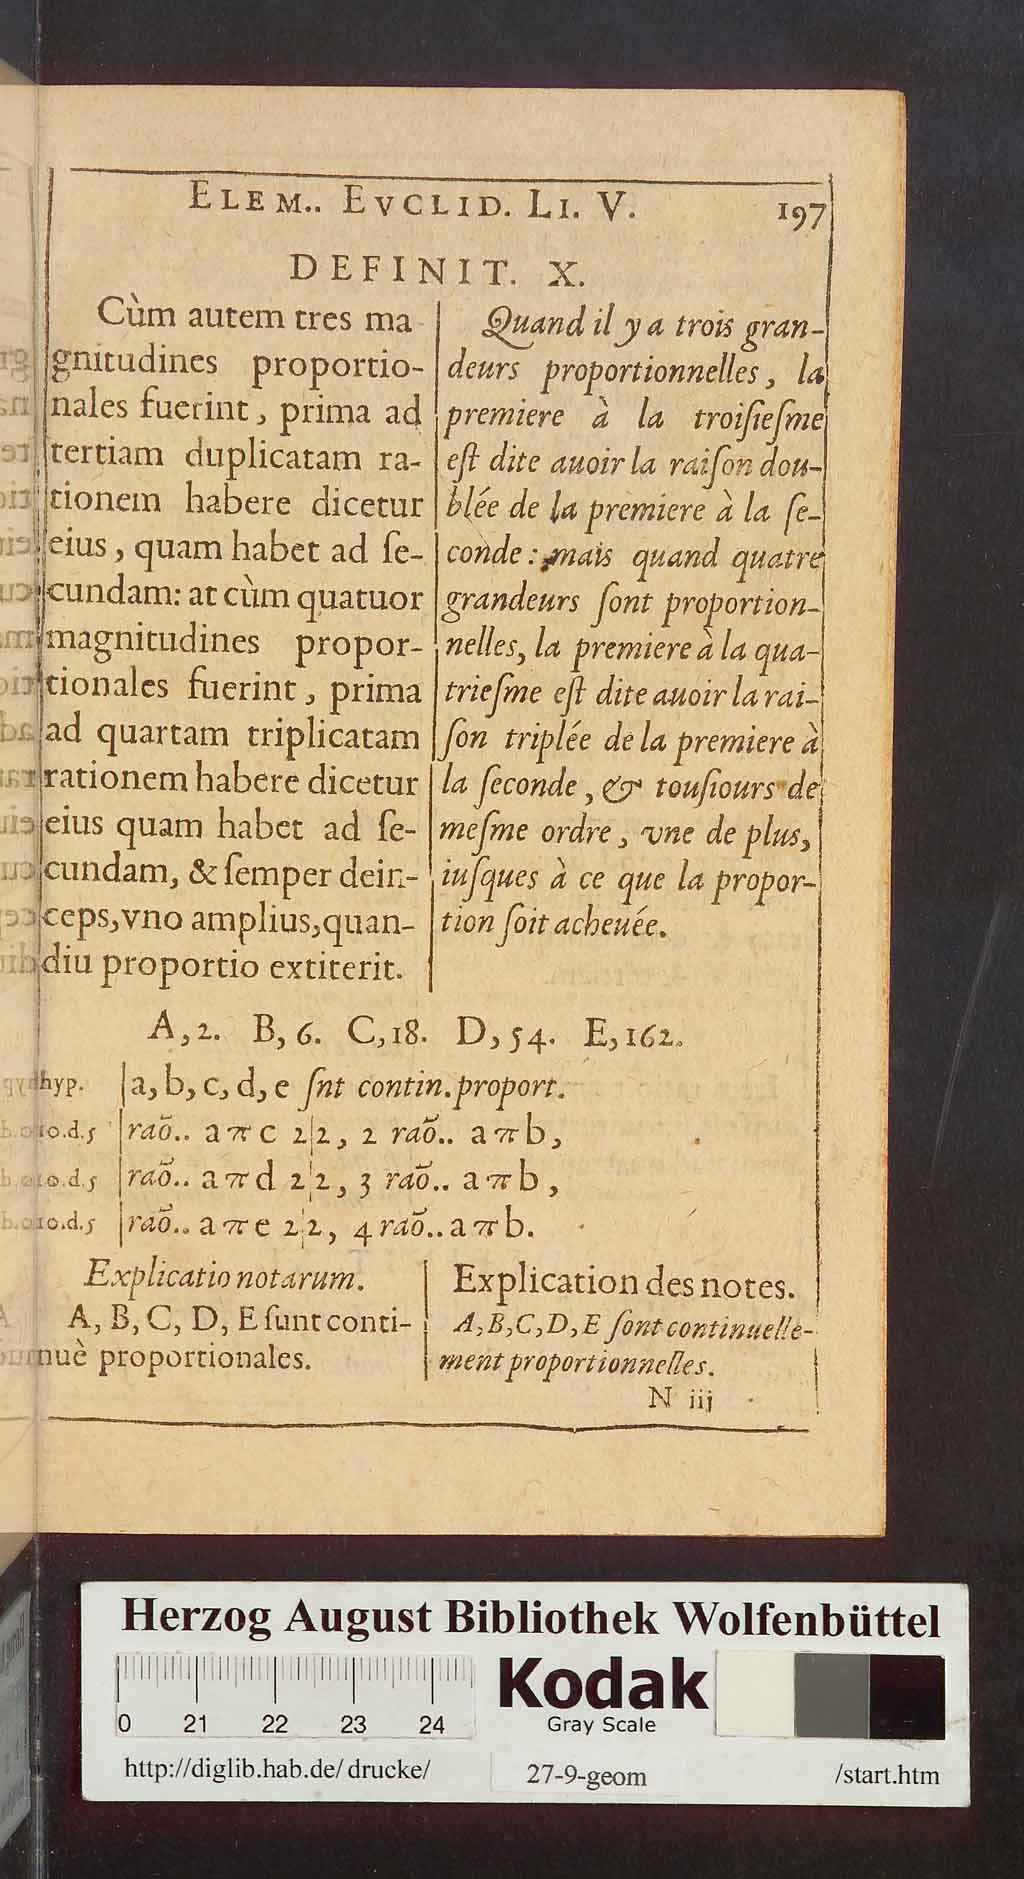 ELEM.. EVCLID. LI. V. 197
DEFINIT. X.
Cùm autem tres ma-
gnitudines proportio-
nales fuerint, prima ad
tertiam duplicatam ra-
tionem habere dicetur
eius, quam habet ad ſe-
cundam: at cùm quatuor
magnitudines propor-
tionales fuerint, prima
ad quartam triplicatam
rationem habere dicetur
eius quam habet ad ſe-
cundam, & ſemper dein-
ceps, vno amplius, quan-
diu proportio extiterit.
Quand il y a trois gran-
deurs proportionnelles, la
premiere à la troiſieſme
eſt dite auoir la raiſon dou-
blée de la premiere à la ſe-
conde: mais quand quatre
grandeurs ſont proportion-
nelles, la premiere à la qua-
trieſme eſt dite auoir la rai-
ſon triplée de la premiere à
la ſeconde, & touſiours de
meſme ordre, vne de plus,
iuſques à ce que la propor-
tion ſoit acheuée.
A, 2. B, 6. C, 18. D, 54. E, 162.
hyp. |a, b, c, d, e ſnt contin. proport.
10.d.5 |raõ.. a π c 2|2, 2 raõ.. a π b,
10.d.5 |raõ.. a π d 2|2, 3 raõ.. a π b,
10.d.5 |raõ.. a π e 2|2, 4 raõ.. a π b.
Explicatio notarum.
A, B, C, D, E ſunt conti-
nuè proportionales.
Explication des notes.
A, B, C, D, E ſont continuelle-
ment proportionnelles.
N iij
Herzog August Bibliothek Wolfenbüttel
0 21 22 23 24
Kodak
Gray Scale
http://diglib.hab.de/drucke/ 27-9-geom /start.htm